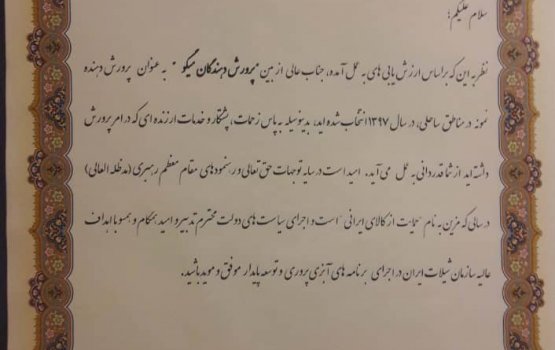 سلام علیکم؛
نظر به این که براساس ارزش یابی های به عمل آمده، جناب عالی از بین "پرورش دهندگان میگو" به عنوان پرورش دهنده
نمونه در مناطق ساحلی، در سال ۱۳۹۷ انتخاب شده اید، بدینوسیله به پاس زحمات، پشتکار و خدمات ارزنده ای که در امر پرورش
داشته اید از شما قدردانی به عمل می آید. امید است در سایه توجهات حق تعالی و رهنمودهای مقام معظم رهبری (مدظله العالی)
در سالی که مزین به نام "حمایت از کالای ایرانی" است و اجرای سیاست های دولت محترم تدبیر و امید همگام و همسو با اهداف
عالیه سازمان شیلات ایران در اجرای برنامه های آبزی پروری و توسعه پایدار موفق و موید باشید.